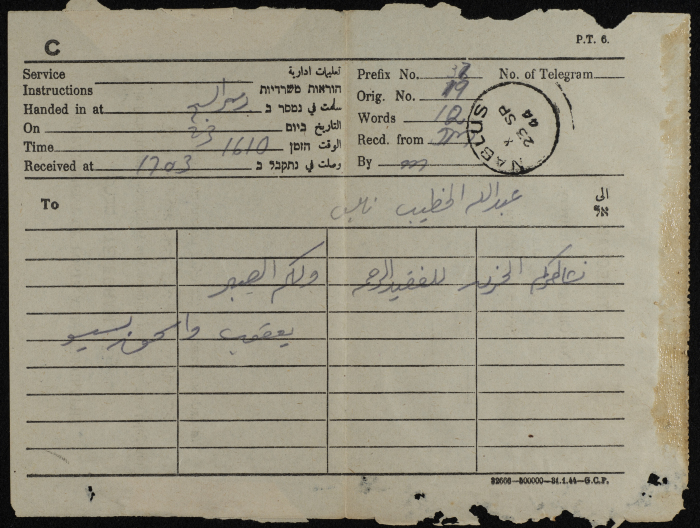 C
P.T. 6.
Service تعليمات ادارية
Instructions הוראות משרדיות
Handed in at سلمت في נמסר ב
On 23 التاريخ ביום
Time 1610 الوقت הזמן
Received at 1703 وصلت في נתקבל ב
Prefix No. 37 No. of Telegram
Orig. No. 19
Words 12
Recd. from
By m
NABLUS
23 SP
44
To عبدالله الخطيب نابلس الى אל
نشاطركم الحزن للفقيد الرحمه ولكم الصبر
يعقوب واسحق
32606—500000—31.1.44—G.C.P.